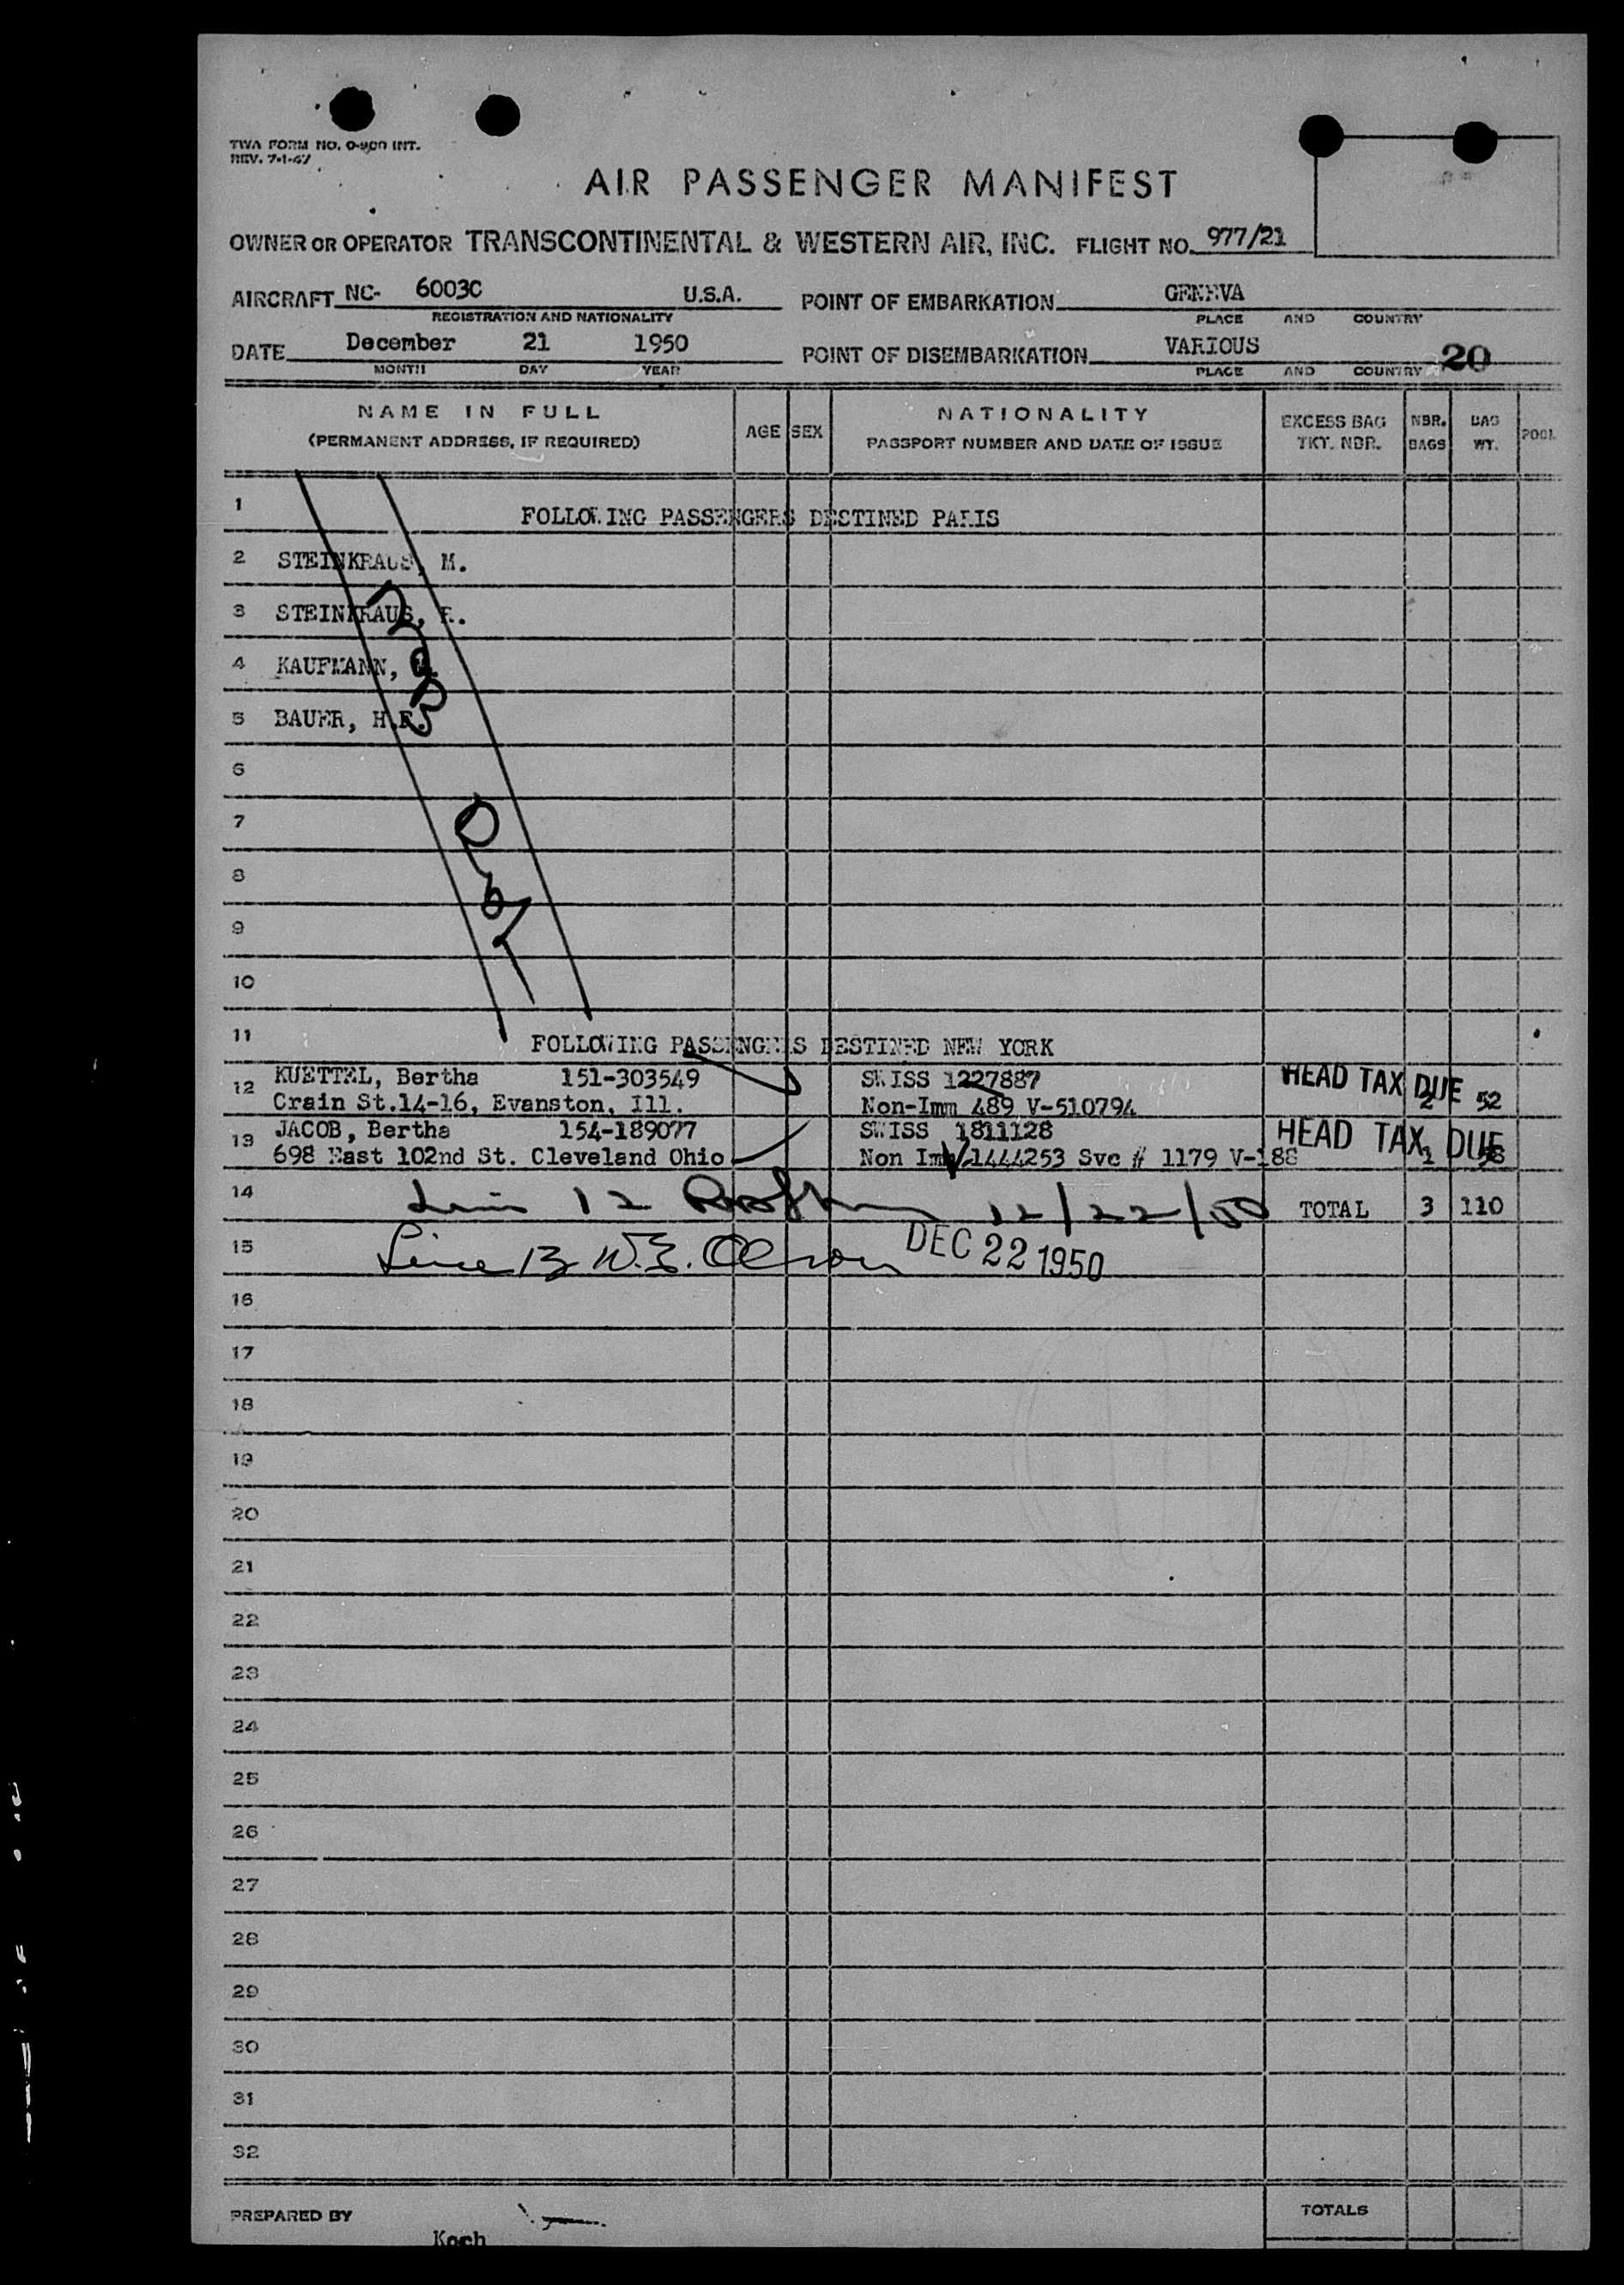 TWA FORM NO. 0-900 INT.
REV. 7-1-47
AIR PASSENGER MANIFEST
OWNER OR OPERATOR TRANSCONTINENTAL & WESTERN AIR, INC. FLIGHT NO. 977/21
AIRCRAFT NC- 6003C U.S.A. POINT OF EMBARKATION GENEVA
REGISTRATION AND NATIONALITY PLACE AND COUNTRY
DATE December 21 1950 POINT OF DISEMBARKATION VARIOUS 20
MONTH DAY YEAR PLACE AND COUNTRY
NAME IN FULL AGE SEX NATIONALITY EXCESS BAG NBR. BAG POOL
(PERMANENT ADDRESS, IF REQUIRED) PASSPORT NUMBER AND DATE OF ISSUE TKT. NBR. BAGS WT.
1 FOLLOWING PASSENGERS DESTINED PARIS
2 STEINKRAUS, M.
3 STEINKRAUS, R.
4 KAUFMANN,
5 BAUER, H.F.
6
7
8
9
10
11 FOLLOWING PASSENGERS DESTINED NEW YORK
12 KUETTEL, Bertha 151-303549 SWISS 1227887 HEAD TAX DUE 2 52
Crain St.14-16, Evanston, Ill. Non-Imm 489 V-510794
13 JACOB, Bertha 154-189077 SWISS 1811128 HEAD TAX DUE 1 58
698 East 102nd St. Cleveland Ohio Non Imm 1444253 Svc # 1179 V-188
14 Line 12 12/22/50 TOTAL 3 110
15 Line 13 W.E. Olson DEC 22 1950
16
17
18
19
20
21
22
23
24
25
26
27
28
29
30
31
32
PREPARED BY TOTALS
Koch